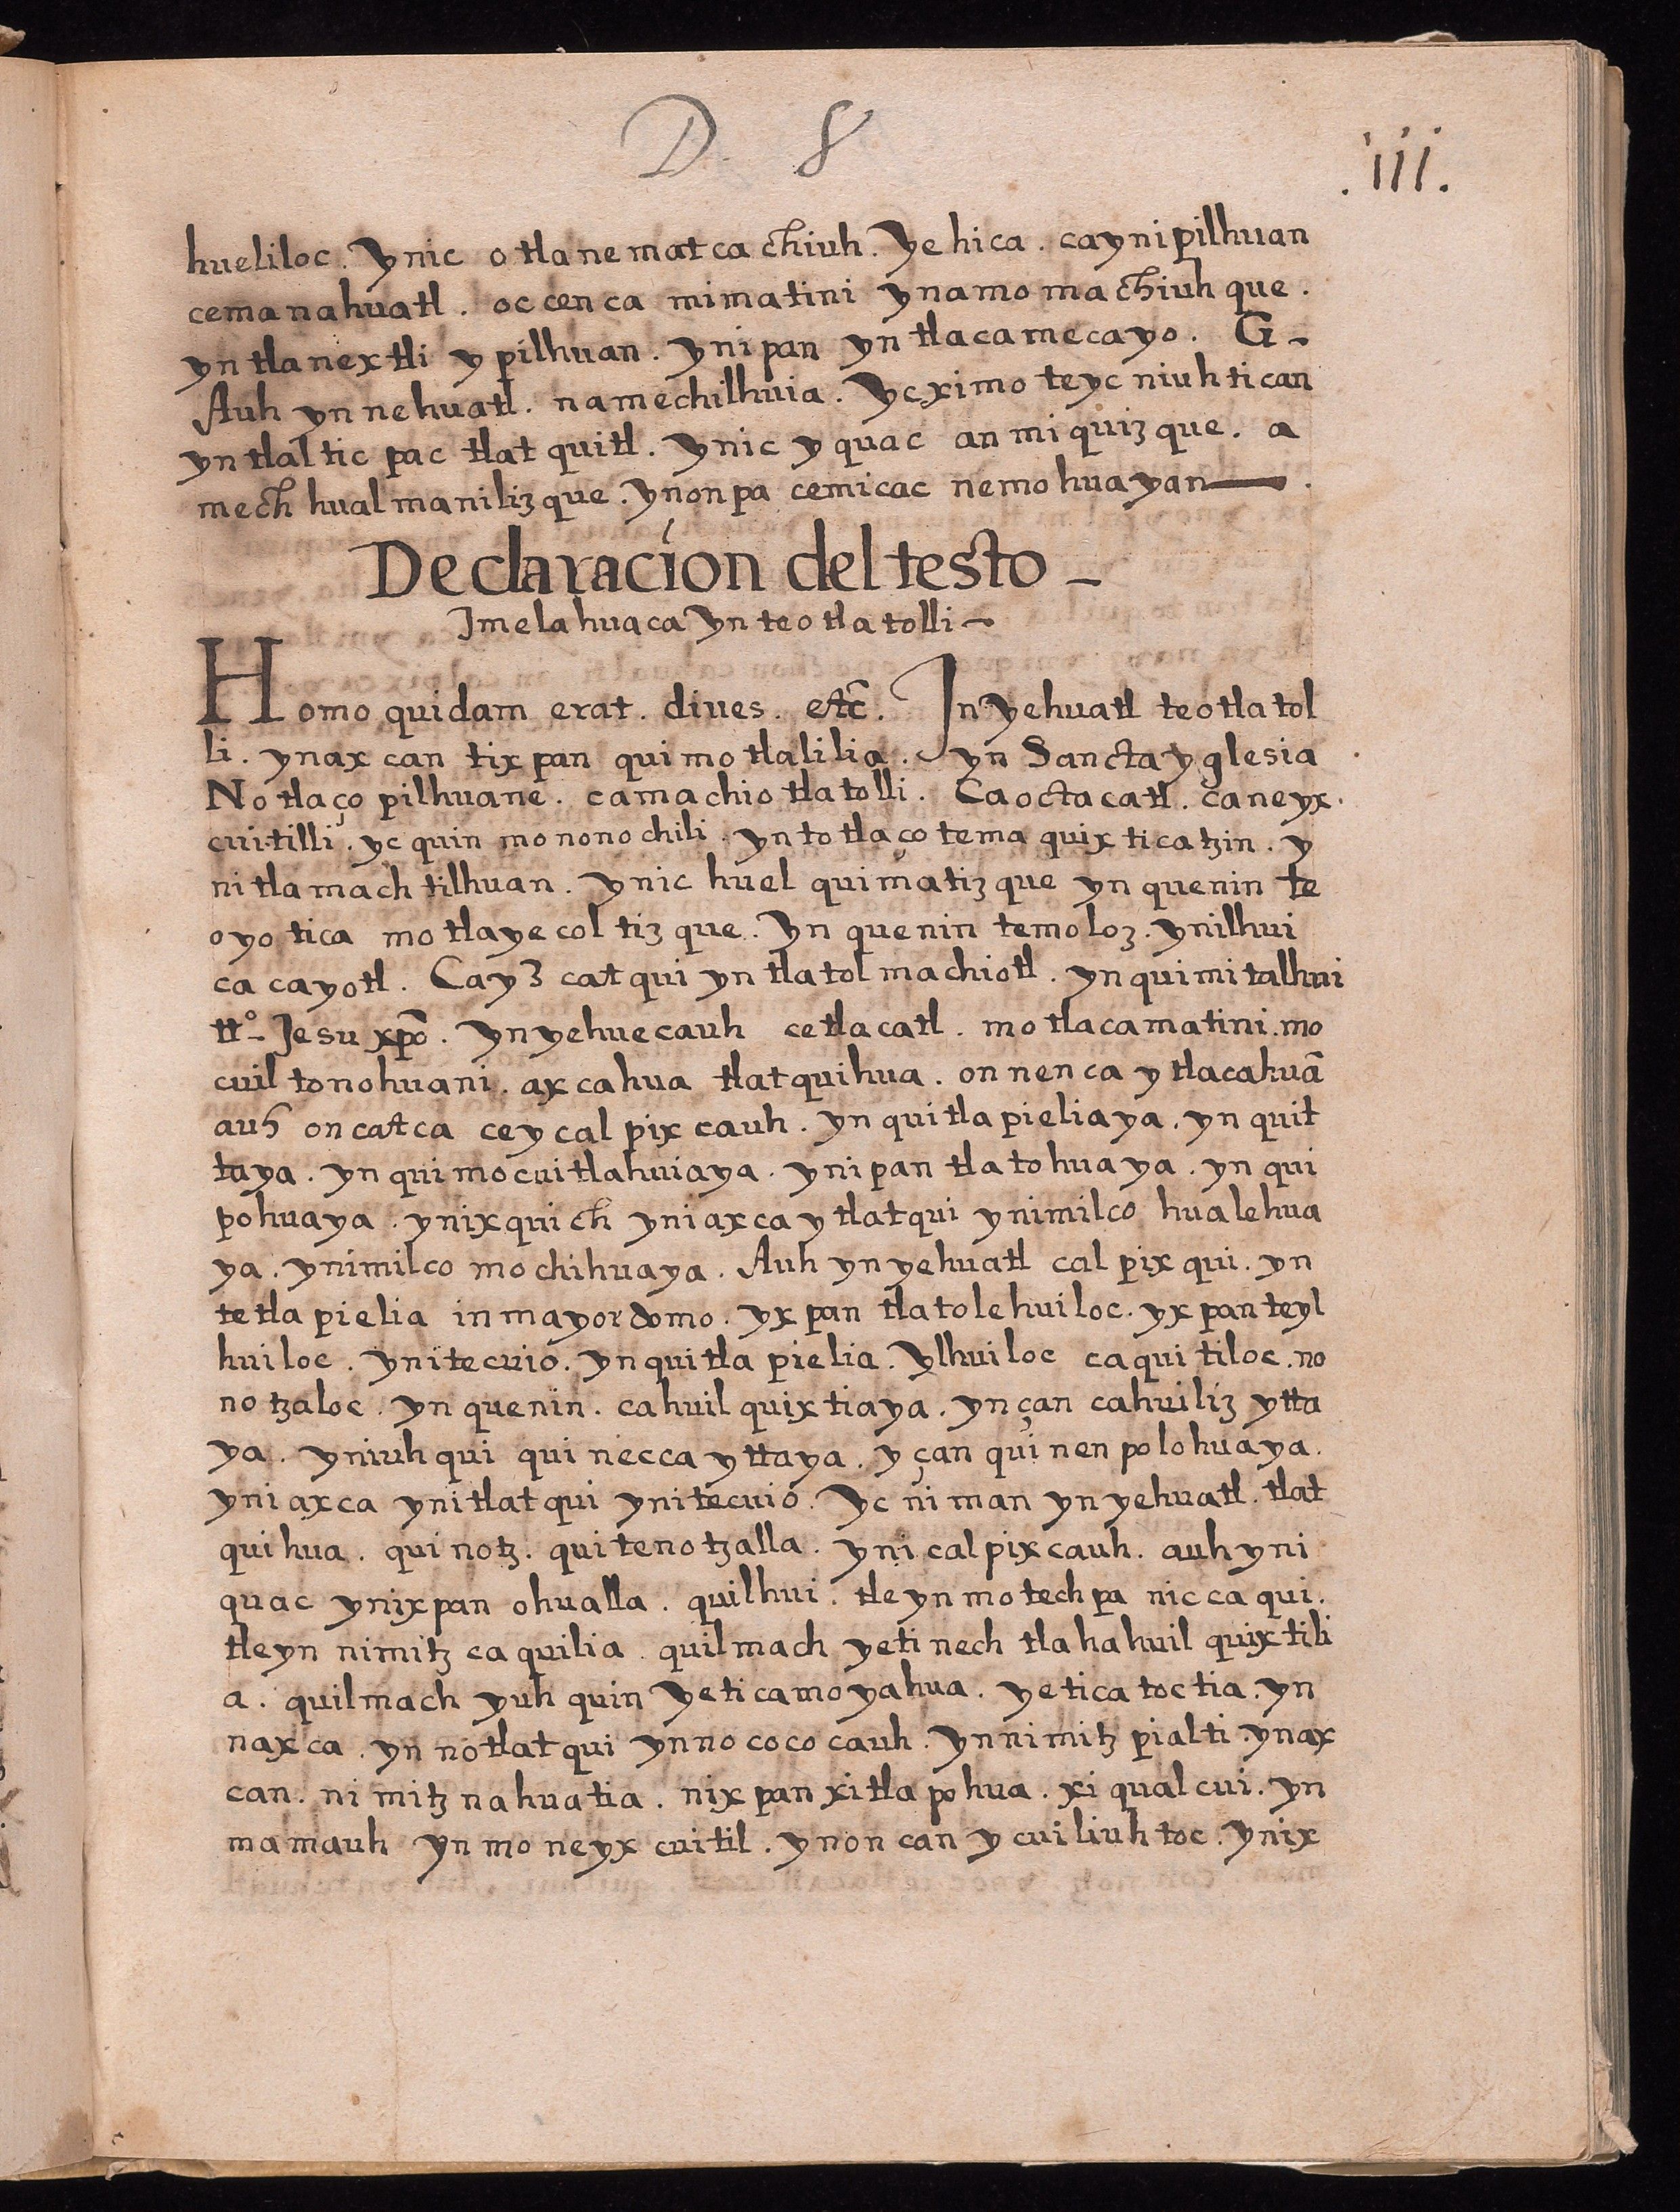 D. 8
.iii.
hueliloc. ynic otlanematcachiuh. Yehica. caynipilhuan
cemanahuatl. occenca mimatini ynamomachiuhque.
yntlanextli ypilhuan. ynipan yntlacamecayo. G-
Auh ynnehuatl. namechilhuia. Ycximoteycniuhtican
yntlalticpac tlatquitl. ynic yquac anmiquizque. a
mech hualmanilizque. ynonpa cemicac nemohuayan.
Declaracion del testo -
Jmelahuaca yn teotlatolli -
Homo quidam erat. diues. etc̃. Jn yehuatl teotlatol
li. ynaxcan tixpan quimotlalilia. yn Sancta yglesia.
Notlaçopilhuane. camachiotlatolli. Caoctacatl. caneyx.
cuitilli. yc quinmononochili. yntotlaçotemaquixticatzin. y
nitlamachtilhuan. ynic huel quimatizque ynquenin te
oyotica motlayecoltizque. Yn quenin temoloz. ynilhui
cacayotl. Cayz catqui yntlatolmachiotl. ynquimitalhui
tt⁰- Jesu xp̃o. Ynyehuecauh cetlacatl. motlacamatini. mo
cuiltonohuani. axcahua tlatquihua. onnenca ytlacahuã
auh oncatca ceycalpixcauh. ynquitlapieliaya. ynquit
taya. ynquimocuitlahuiaya. ynipan tlatohuaya. ynqui
pohuaya. ynixquich yniaxca ytlatqui ynimilco hualehua
ya. ynimilco mochihuaya. Auh ynyehuatl calpixqui. yn
tetlapielia inmayordomo. yxpan tlatolehuiloc. yxpanteyl
huiloc. ynitecuio. ynquitlapielia. ylhuiloc caquitiloc. no
notzaloc. ynquenin. cahuilquixtiaya. ynçan cahuiliz ytta
ya. yniuhqui quineccayttaya. yçan quinenpolohuaya.
yniaxca ynitlatqui ynitecuio. Yc niman ynyehuatl. tlat
quihua. quinotz. quitenotzalla. ynicalpixcauh. auhyni
quac ynixpan ohualla. quilhui. tleynmotechpa niccaqui.
tleyn nimitzcaquilia. quilmach yetinechtlahahuilquixtili
a. quilmach yuhquin yeticamoyahua. yeticatoctia. yn
naxca. ynnotlatqui ynnococoçauh. ynnimitzpialti. ynax
can. nimitznahuatia. nixpan xitlapohua. xiqualcui. yn
mamauh ynmoneyxcuitil. ynoncan ycuiliuhtoc. ynix